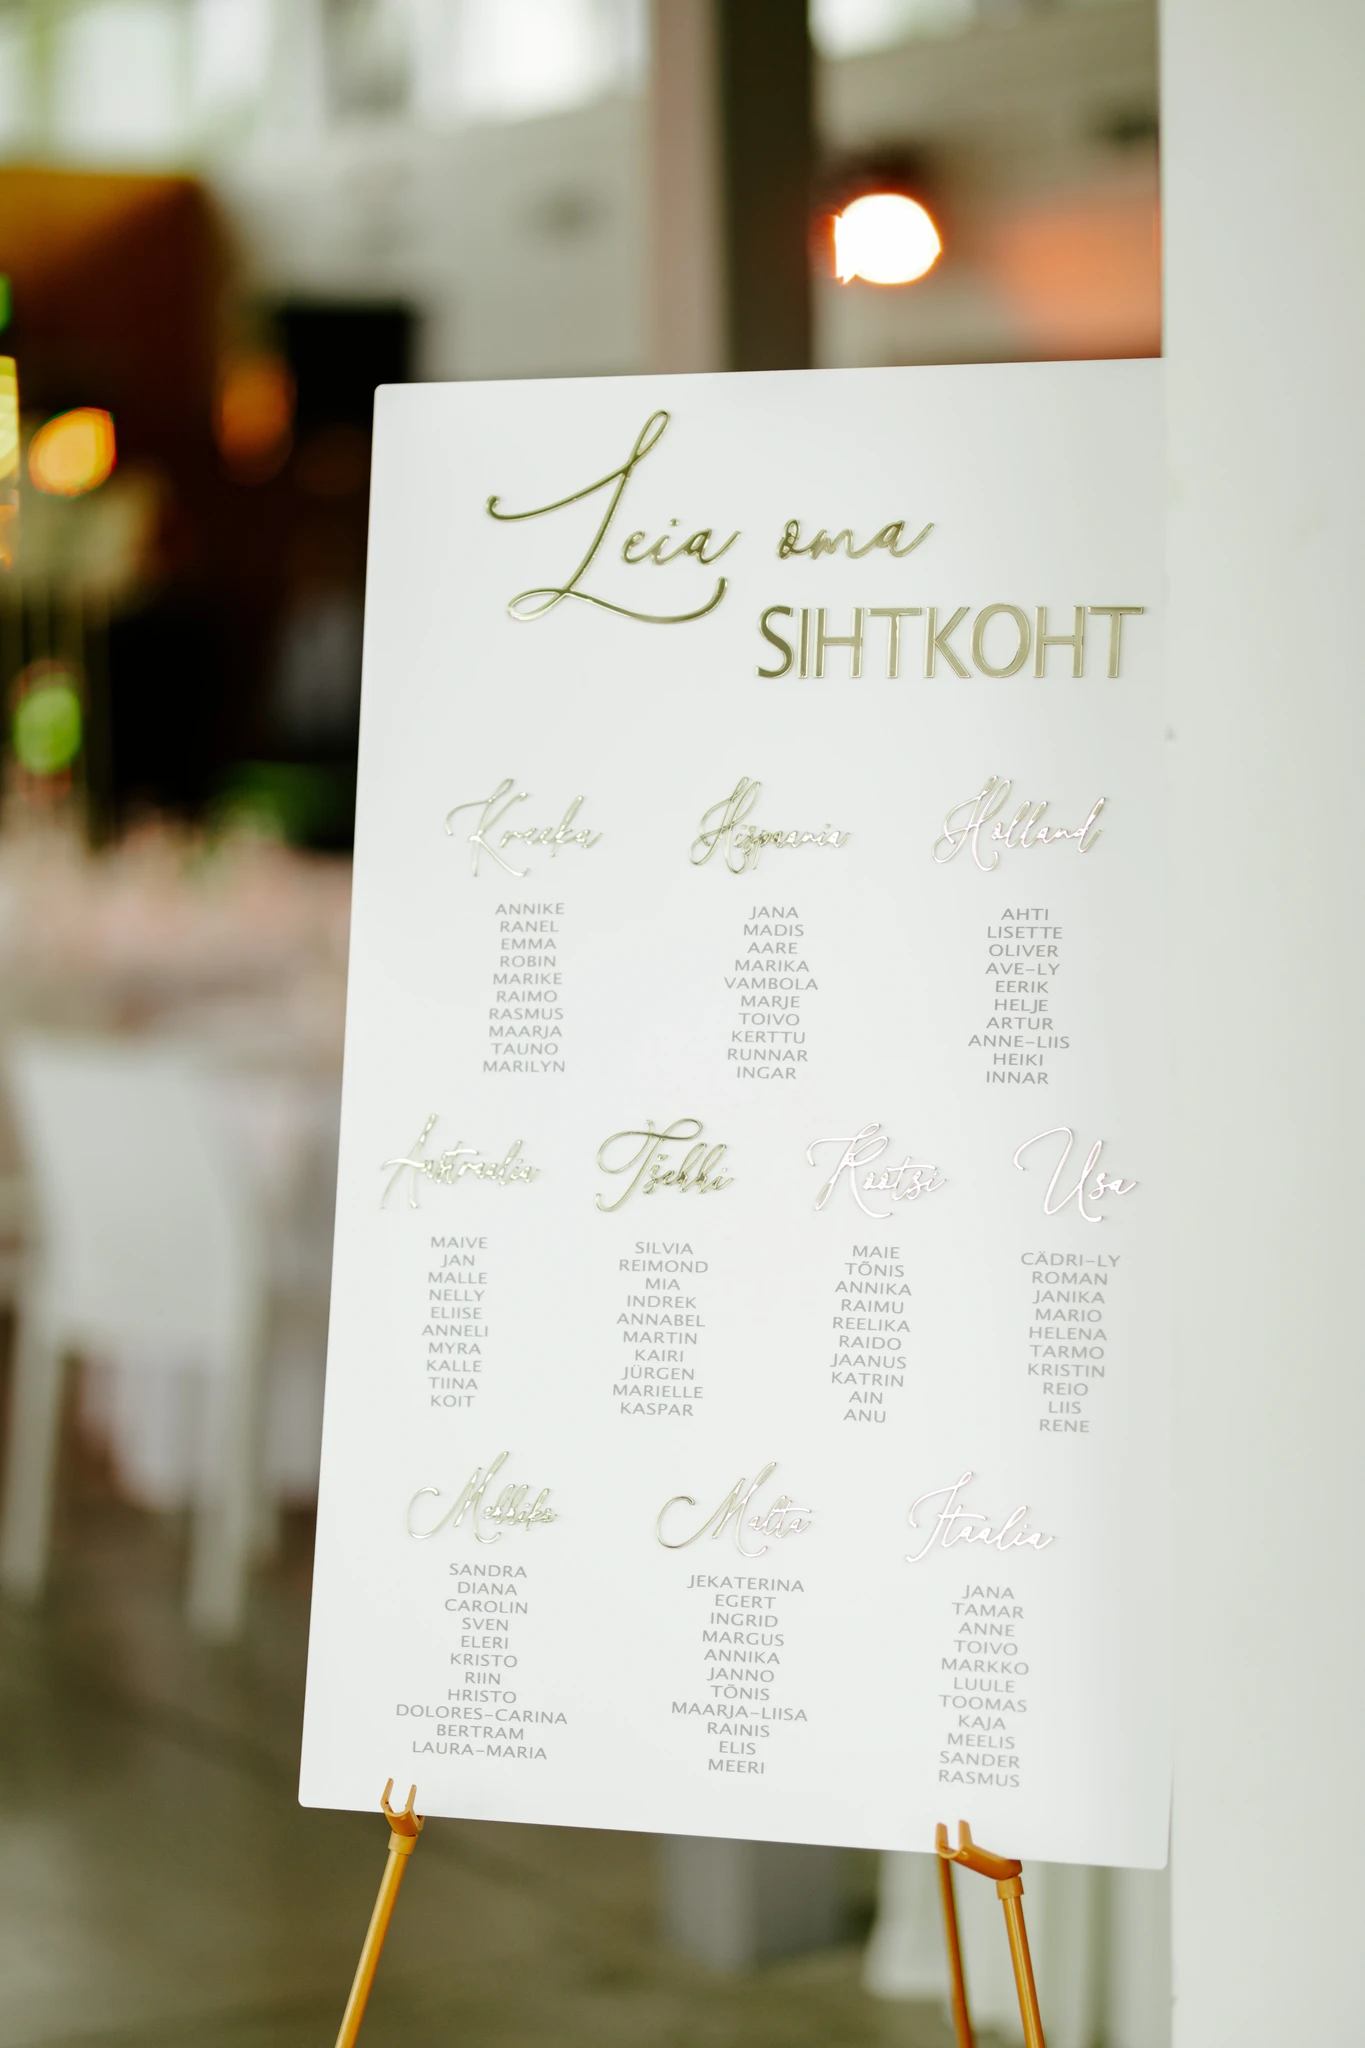 Leia oma
SIHTKOHT
Kreeka
ANNIKE
RANEL
EMMA
ROBIN
MARIKE
RAIMO
RASMUS
MAARJA
TAUNO
MARILYN
Hispaania
JANA
MADIS
AARE
MARIKA
VAMBOLA
MARJE
TOIVO
KERTTU
RUNNAR
INGAR
Holland
AHTI
LISETTE
OLIVER
AVE-LY
EERIK
HELJE
ARTUR
ANNE-LIIS
HEIKI
INNAR
Austraalia
MAIVE
JAN
MALLE
NELLY
ELIISE
ANNELI
MYRA
KALLE
TIINA
KOIT
Tšehhi
SILVIA
REIMOND
MIA
INDREK
ANNABEL
MARTIN
KAIRI
JÜRGEN
MARIELLE
KASPAR
Rootsi
MAIE
TÕNIS
ANNIKA
RAIMU
REELIKA
RAIDO
JAANUS
KATRIN
AIN
ANU
Usa
CÄDRI-LY
ROMAN
JANIKA
MARIO
HELENA
TARMO
KRISTIN
REIO
LIIS
RENE
Mehhiko
SANDRA
DIANA
CAROLIN
SVEN
ELERI
KRISTO
RIIN
HRISTO
DOLORES-CARINA
BERTRAM
LAURA-MARIA
Malta
JEKATERINA
EGERT
INGRID
MARGUS
ANNIKA
JANNO
TÕNIS
MAARJA-LIISA
RAINIS
ELIS
MEERI
Itaalia
JANA
TAMAR
ANNE
TOIVO
MARKKO
LUULE
TOOMAS
KAJA
MEELIS
SANDER
RASMUS